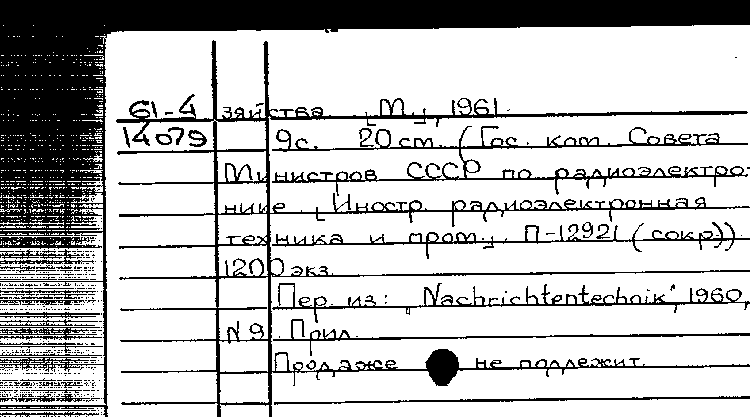 61-4 зяйства [М.], 1961.
14079 9с. 20 см. (Гос. ком. Совета
Министров СССР по радиоэлектро-
нике. [Иностр. радиоэлектронная
техника и пром.]. П-12921 (сокр))
1200 экз.
Пер. из: „Nachrichtentechnik", 1960,
N 9. Прил.
Продаже не подлежит.